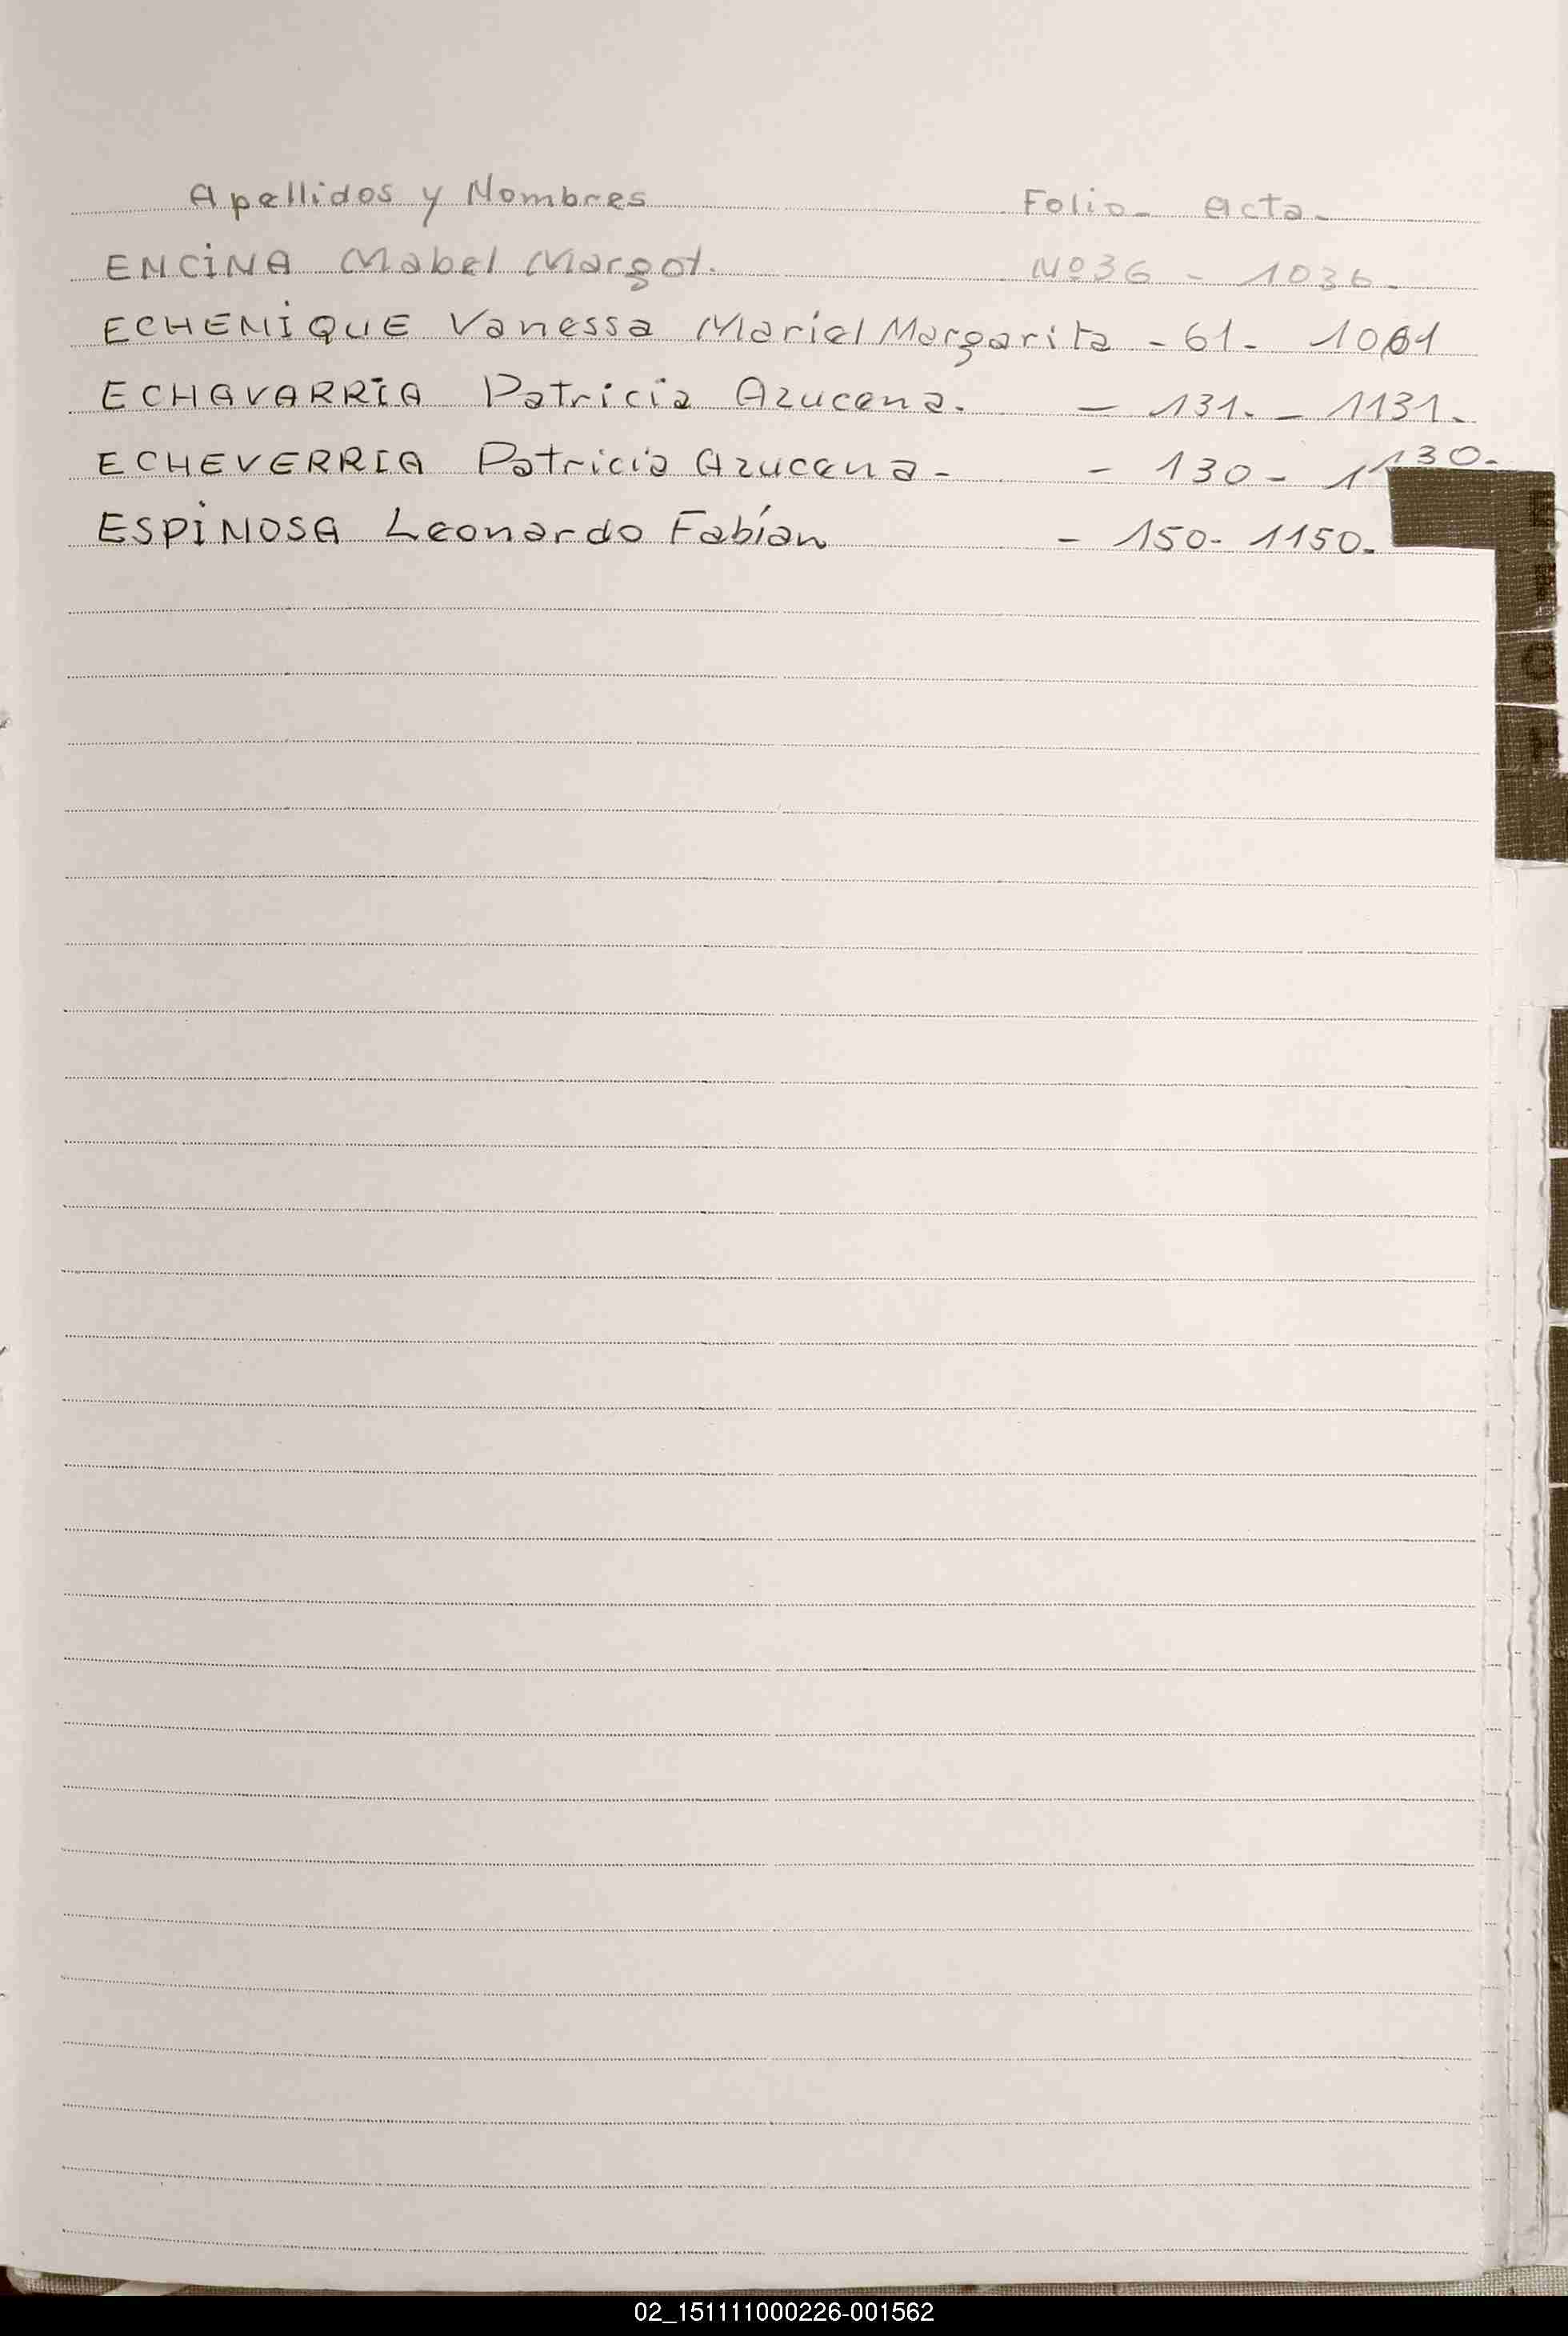 Apellidos y Nombres Folio - acta -
ENCINA Mabel Margot. Nº36 - 1036 -
ECHENIQUE Vanessa Mariel Margarita - 61 - 1061
ECHAVARRIA Patricia Azucena. - 131. - 1131.
ECHEVERRIA Patricia Azucena - - 130 - 1130 -
ESPINOSA Leonardo Fabían - 150 - 1150.
02_151111000226-001562